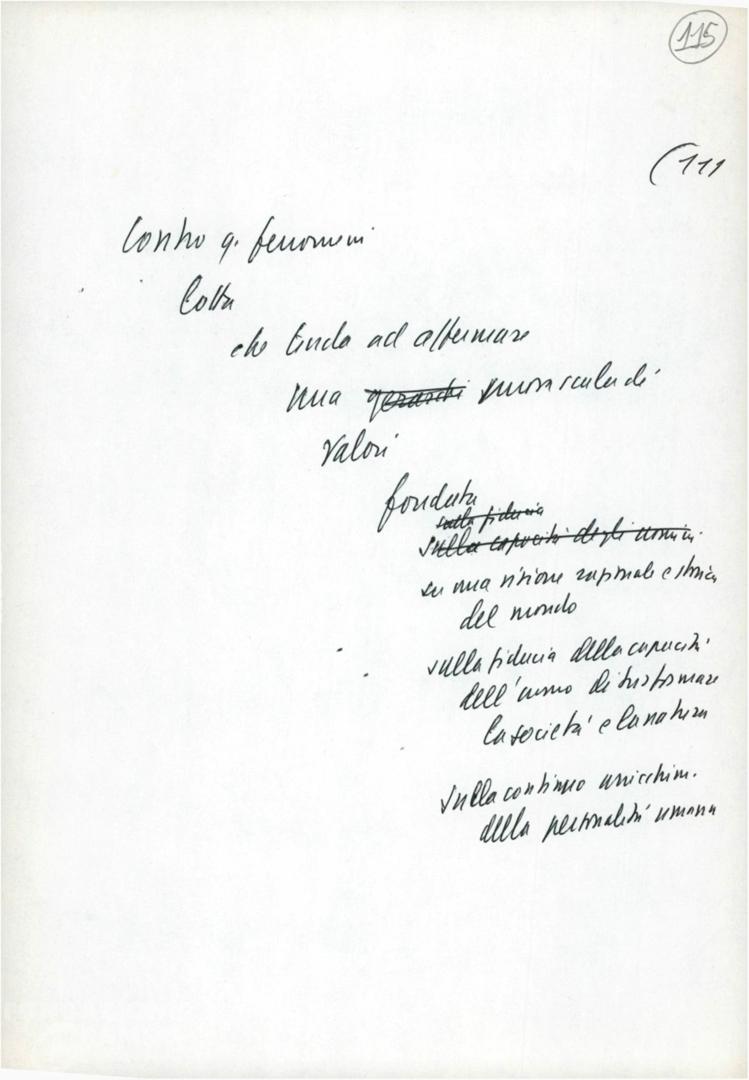 115
(111
Contro q. fenomeni
lotta
che tenda ad affermare
una gerarchi nuova scala di
valori
fondata
sulla fiducia
sulla capacità degli uomini
su una visione razionale e storica
del mondo
sulla fiducia della capacità
dell'uomo di trasformare
la società e la natura
sulla continuo arricchim.
della personalità umana